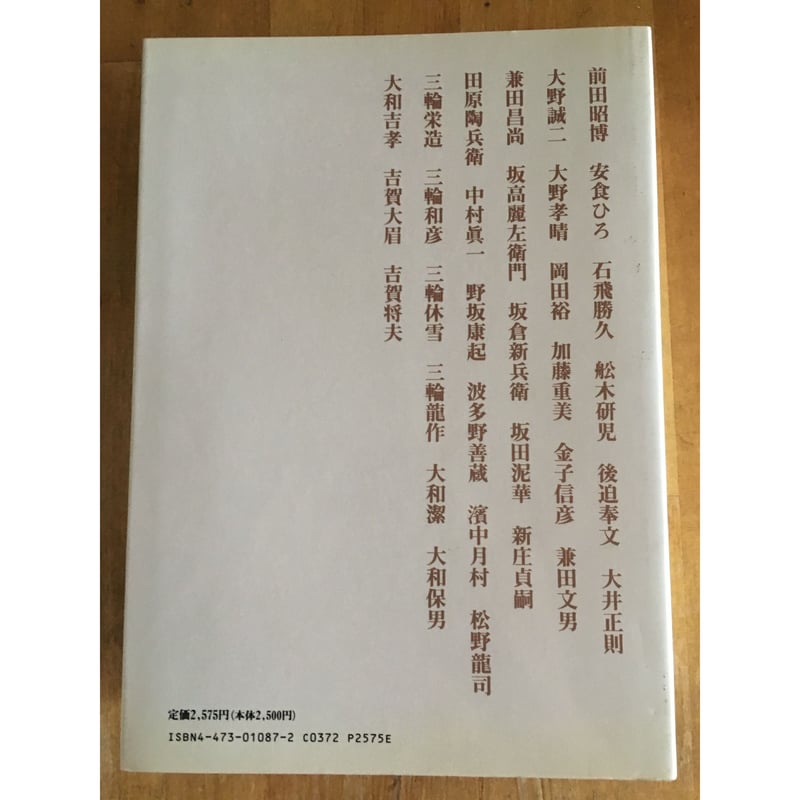 前田昭博　安食ひろ　石飛勝久　舩木研児　後迫奉文　大井正則
大野誠二　大野孝晴　岡田裕　加藤重美　金子信彦　兼田文男
兼田昌尚　坂高麗左衛門　坂倉新兵衛　坂田泥華　新庄貞嗣
田原陶兵衛　中村眞一　野坂康起　波多野善蔵　濱中月村　松野龍司
三輪栄造　三輪和彦　三輪休雪　三輪龍作　大和潔　大和保男
大和吉孝　吉賀大眉　吉賀将夫
定価2,575円(本体2,500円)
ISBN4-473-01087-2 C0372 P2575E